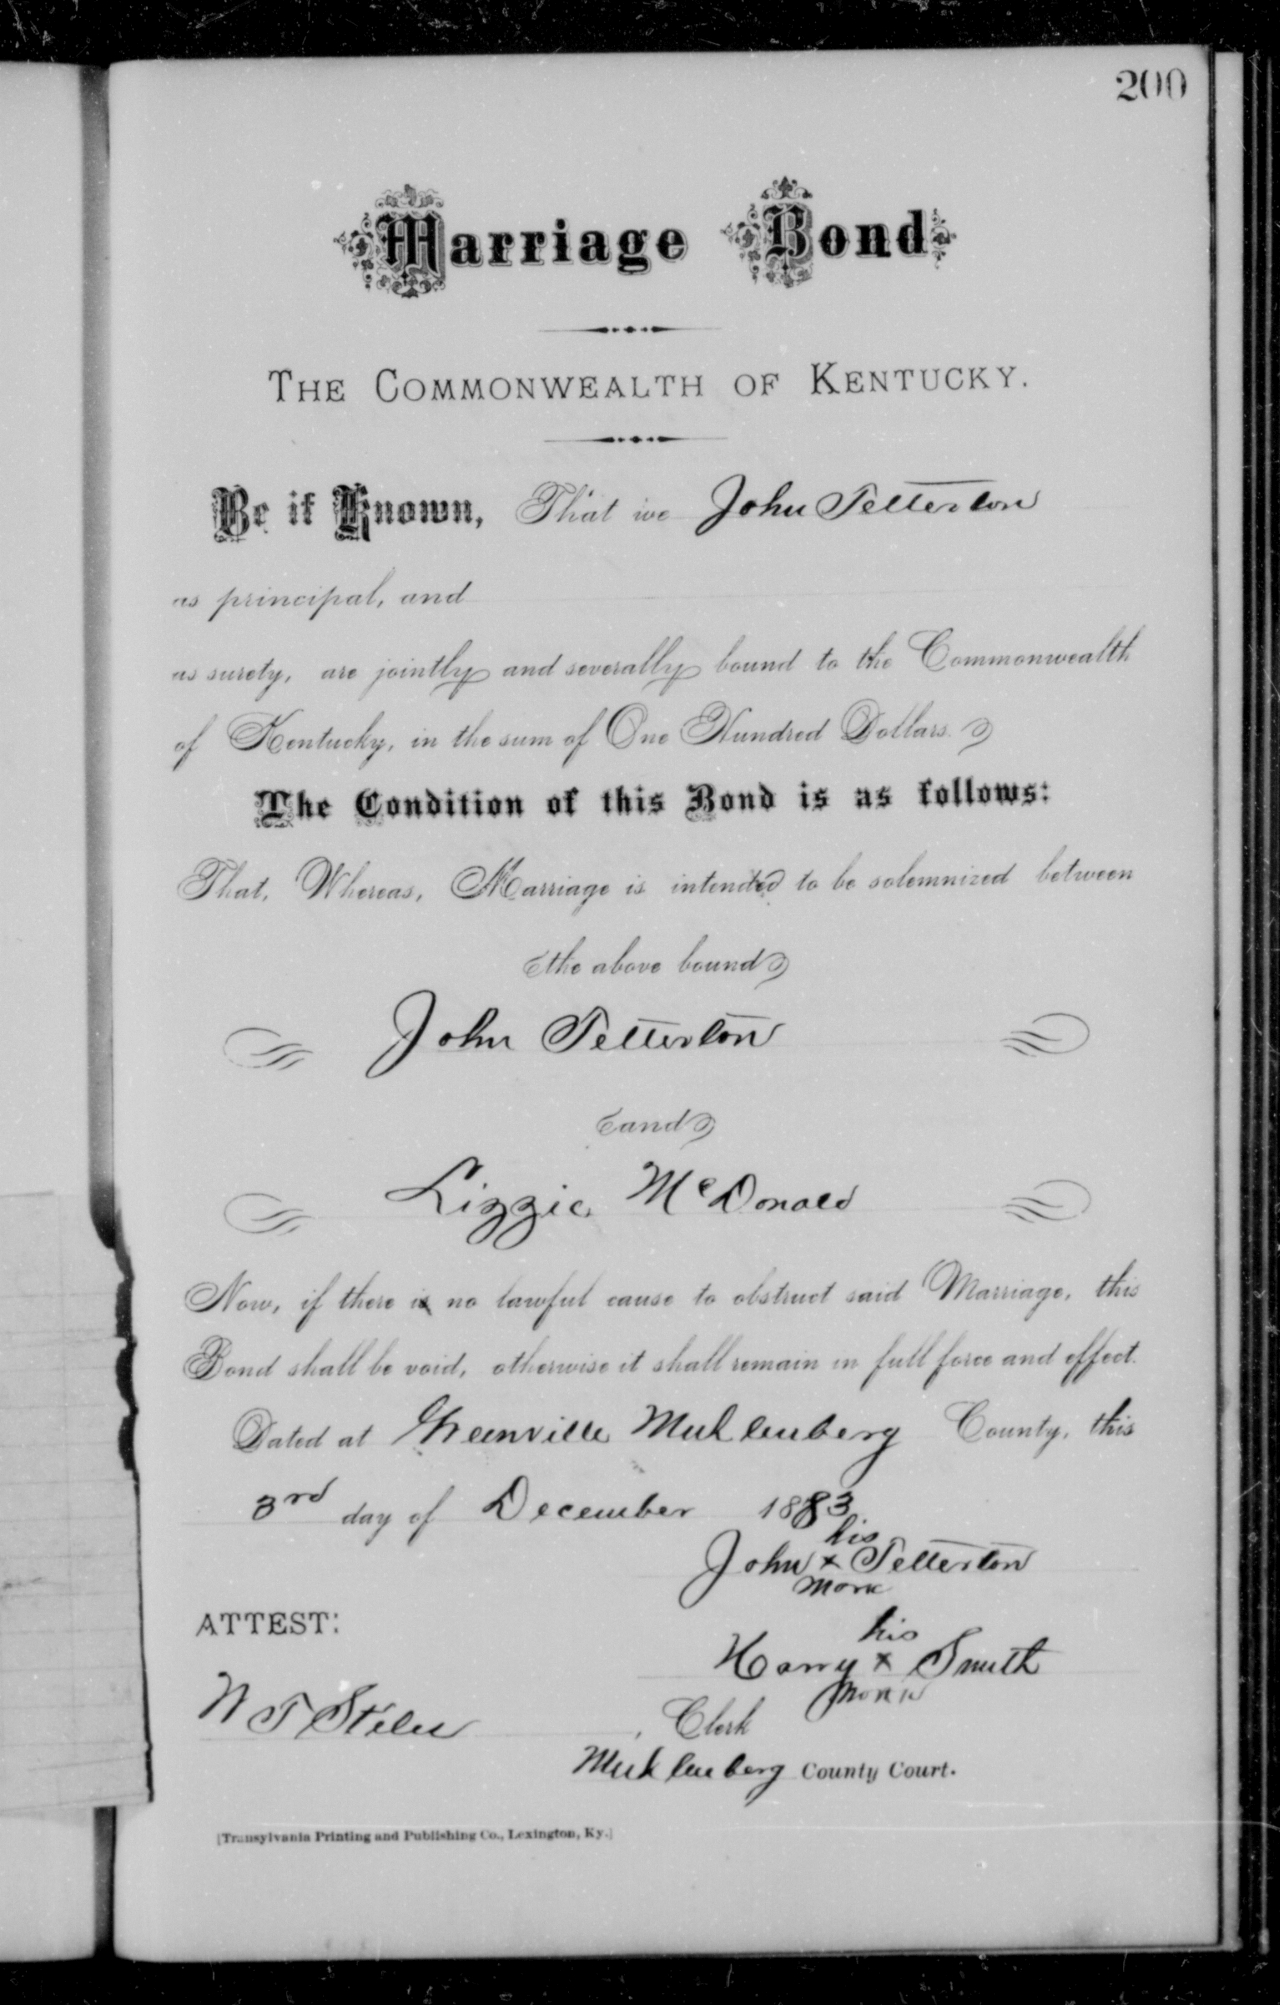 200
Marriage Bond
THE COMMONWEALTH OF KENTUCKY.
Be it Known, That we John Tetterton
as principal, and
as surety, are jointly and severally bound to the Commonwealth
of Kentucky, in the sum of One Hundred Dollars.
The Condition of this Bond is as follows:
That, Whereas, Marriage is intended to be solemnized between
the above bound
John Tetterton
and
Lizzie McDonald
Now, if there is no lawful cause to obstruct said Marriage, this
Bond shall be void, otherwise it shall remain in full force and effect.
Dated at Greenville Muhlenberg County, this
3rd day of December 1883
his
John x Tetterton
mark
ATTEST:
his
Harry x Smith
mark
W T Stiles, Clerk
Muhlenberg County Court.
[Transylvania Printing and Publishing Co., Lexington, Ky.]